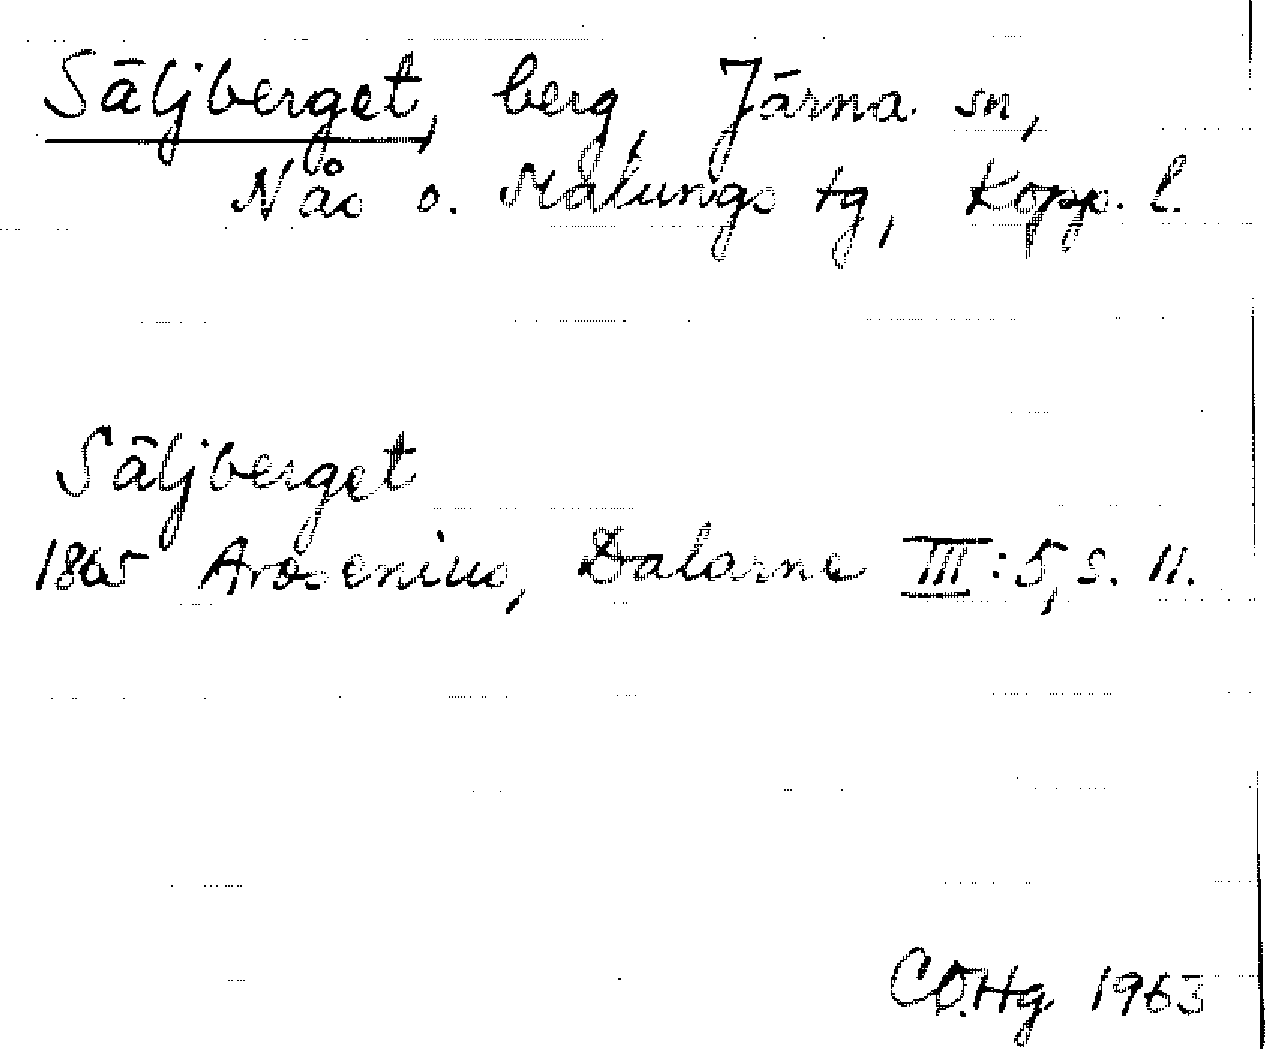 Säljberget, berg, Järna sn,
Nås o. Malungs tg, Kopp. l.
Säljberget
1865 Arosenius, Dalarne III:5, s. 11.
CO.Hg. 1963